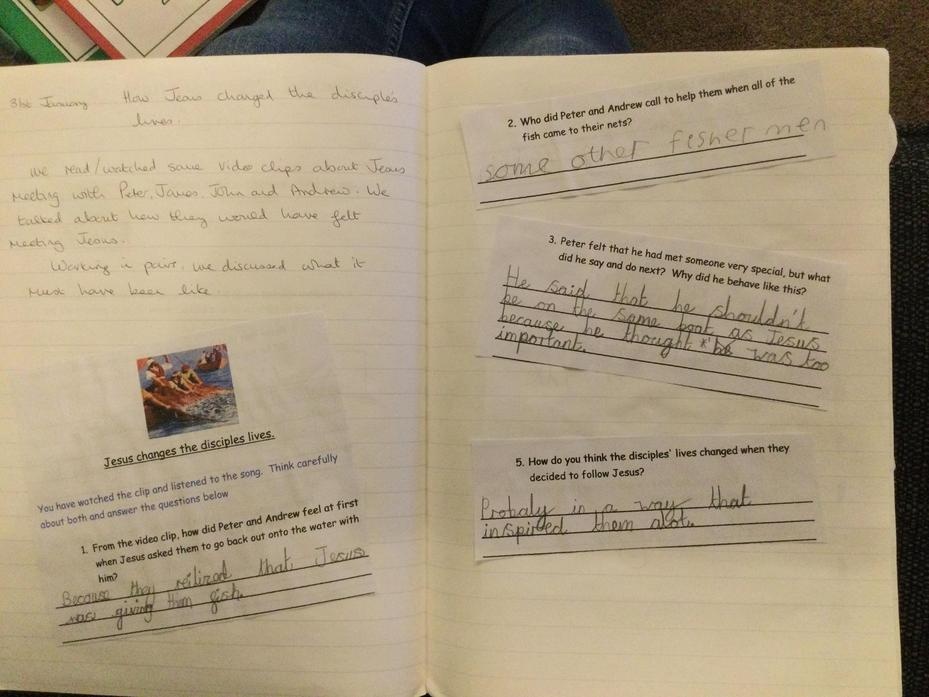 31st January How Jesus changed the disciple's
lives.
We read/watched some video clips about Jesus
meeting with Peter, James, John and Andrew. We
talked about how they would have felt
meeting Jesus.
Working in pairs, we discussed what it
must have been like.
Jesus changes the disciples lives.
You have watched the clip and listened to the song. Think carefully
about both and answer the questions below
1. From the video clip, how did Peter and Andrew feel at first
when Jesus asked them to go back out onto the water with
him?
Because they reilized that Jesus
was giving them fish.
2. Who did Peter and Andrew call to help them when all of the
fish came to their nets?
some other fisher men
3. Peter felt that he had met someone very special, but what
did he say and do next? Why did he behave like this?
He said that he shouldn't
be on the same boat as Jesus
because he thought * he was too
important.
5. How do you think the disciples' lives changed when they
decided to follow Jesus?
Probaly in a way that
inspired them alot.